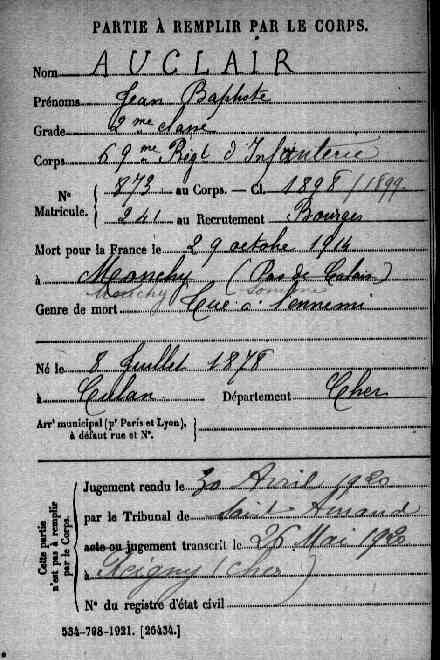 PARTIE À REMPLIR PAR LE CORPS.
Nom AUCLAIR
Prénoms Jean Baptiste
Grade 2me classe
Corps 69me Régt d'Infanterie
N° Matricule. { 873 au Corps. — Cl. 1898 / 1899
241 au Recrutement Bourges
Mort pour la France le 29 octobre 1914
à Monchy (Pas de Calais)
Monchy Somme
Genre de mort Tué à l'ennemi
Né le 8 Juillet 1878
à Culan Département Cher
Arrt municipal (pr Paris et Lyon), à défaut rue et N°. }
Cette partie n'est pas à remplir par le Corps.
Jugement rendu le 30 Avril 1920
par le Tribunal de Saint Amand
acte ou jugement transcrit le 26 Mai 1920
à (Cher)
N° du registre d'état civil
534-708-1921. [26434.]